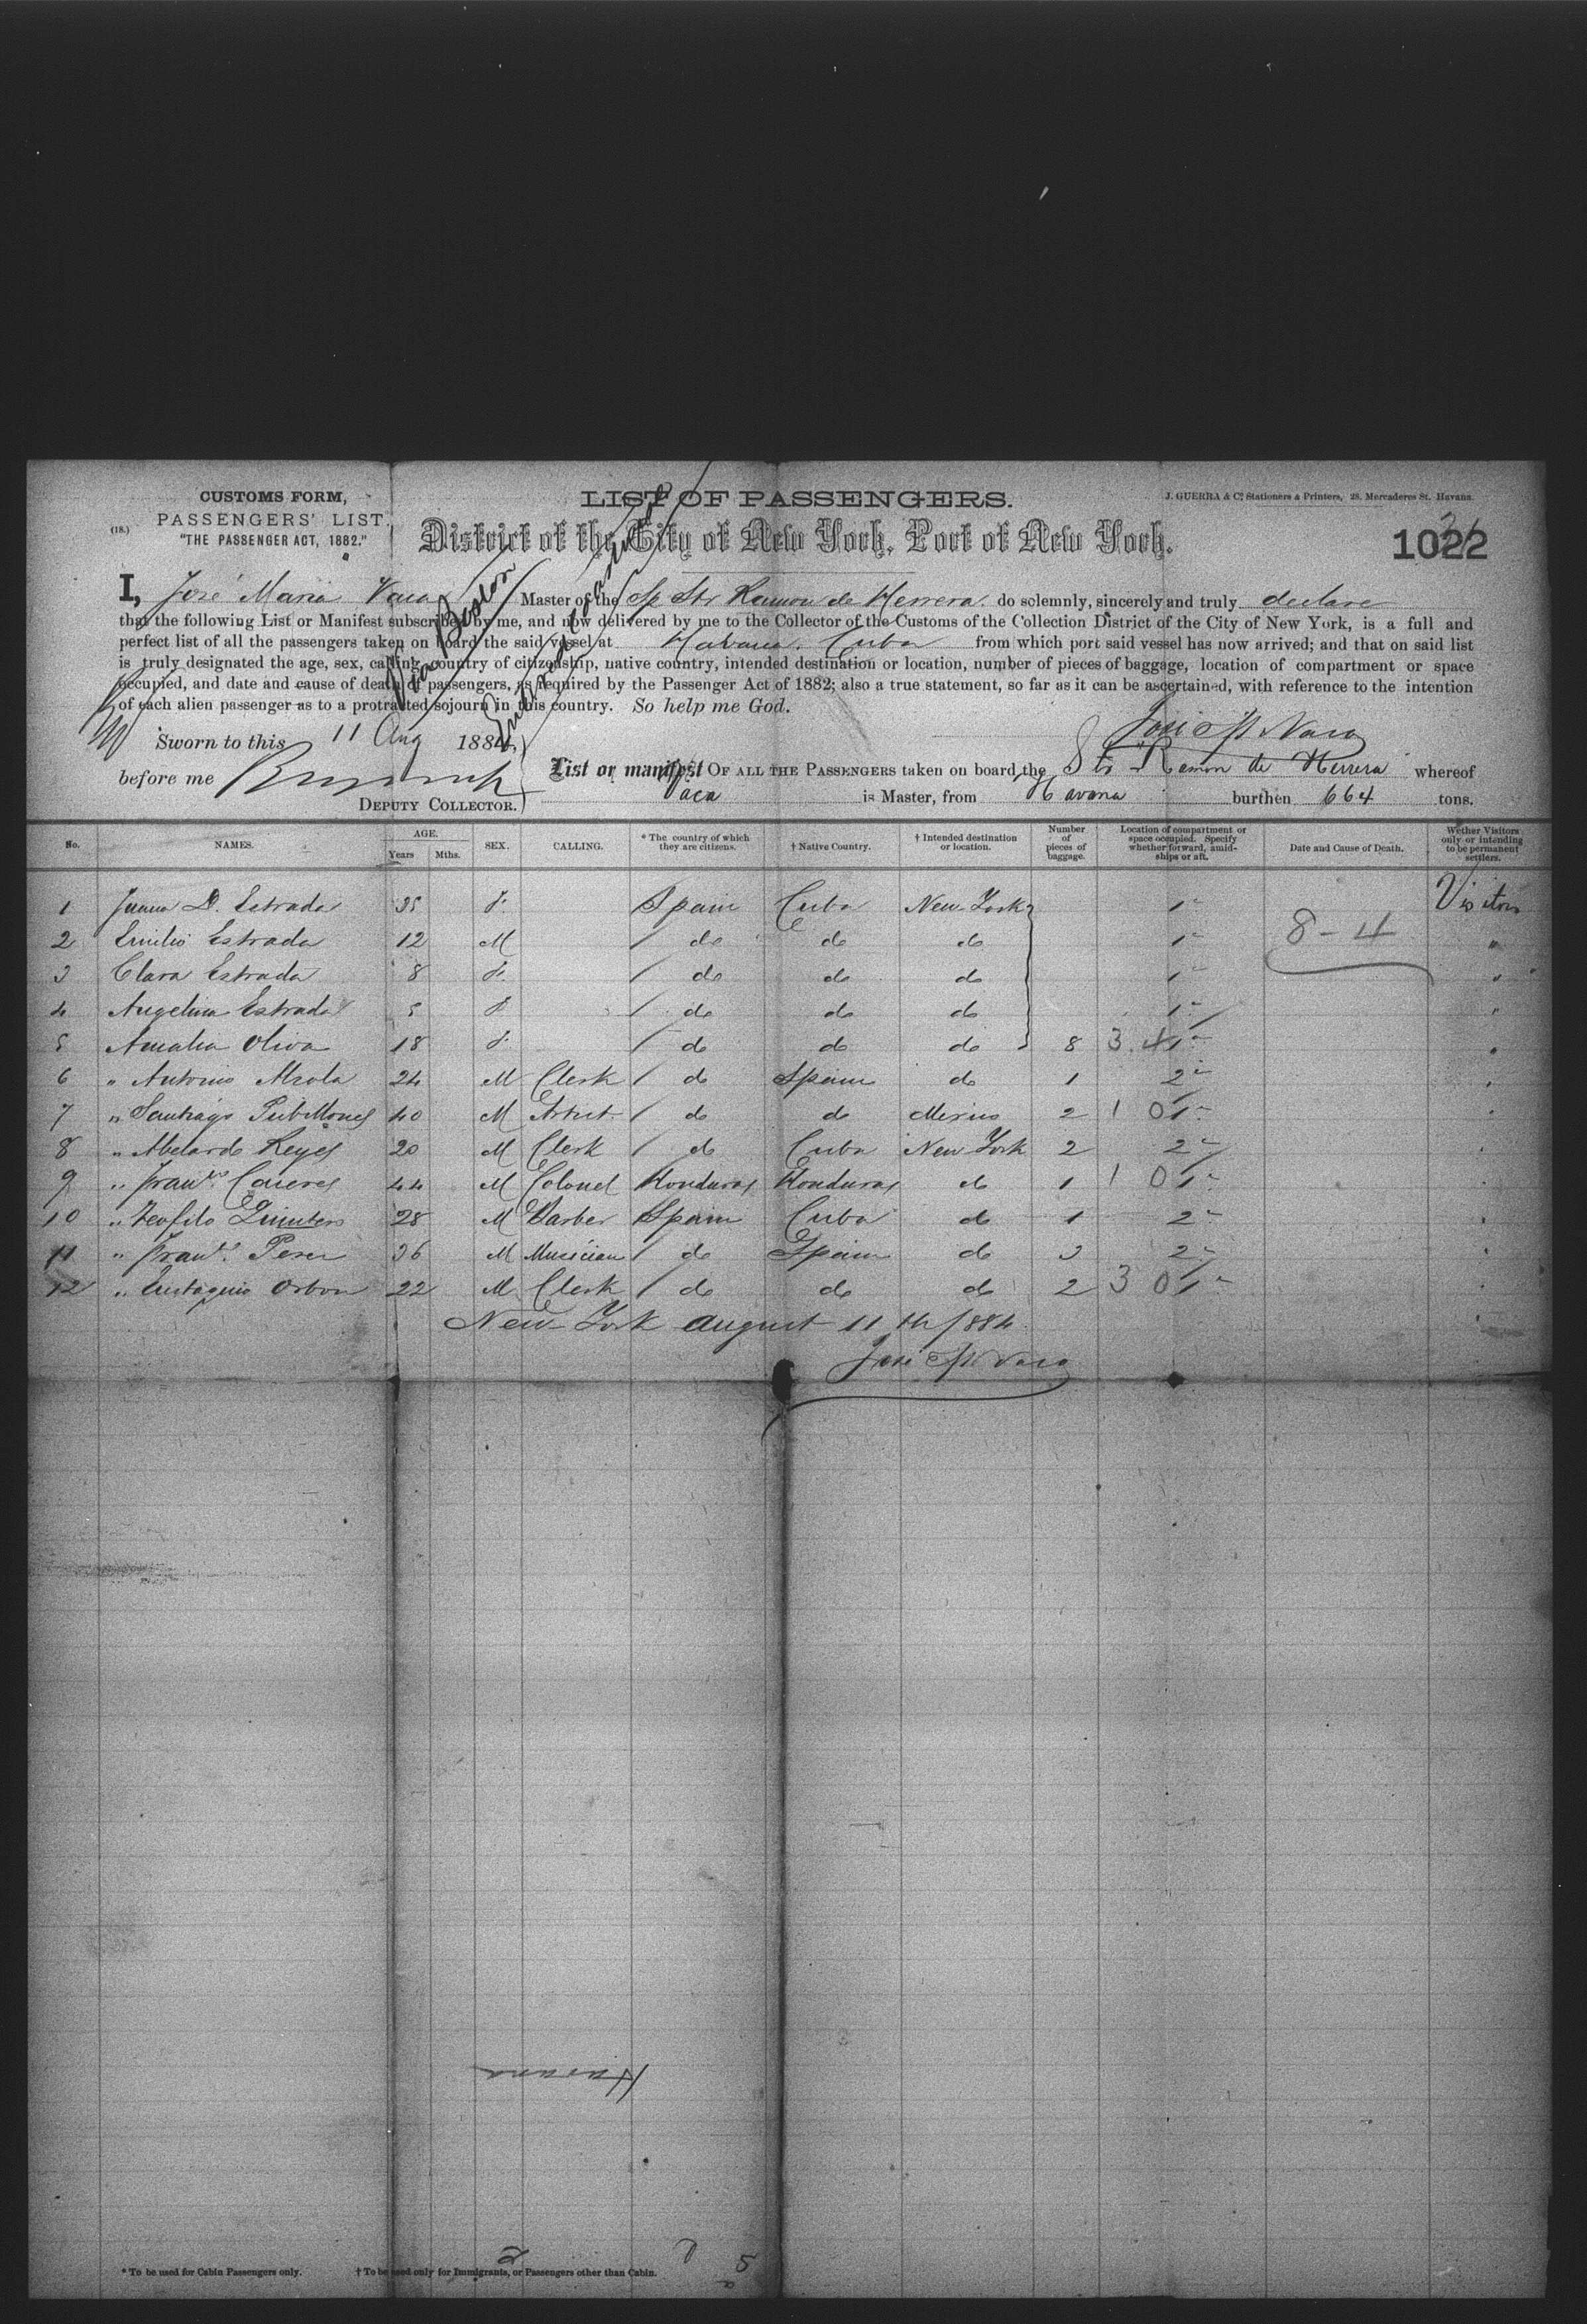 CUSTOMS FORM,
(18.) PASSENGERS' LIST.
"THE PASSENGER ACT, 1882."
LIST OF PASSENGERS.
J. GUERRA & Co. Stationers & Printers, 28. Mercaderes St. Havana.
District of the City of New York, Port of New York.
1022
I, José Maria Vaca Master of the Sp Str Ramon de Herrera do solemnly, sincerely and truly declare
that the following List or Manifest subscribed by me, and now delivered by me to the Collector of the Customs of the Collection District of the City of New York, is a full and
perfect list of all the passengers taken on board the said vessel at Habana, Cuba from which port said vessel has now arrived; and that on said list
is truly designated the age, sex, calling, country of citizenship, native country, intended destination or location, number of pieces of baggage, location of compartment or space
occupied, and date and cause of death of passengers, as required by the Passenger Act of 1882; also a true statement, so far as it can be ascertained, with reference to the intention
of each alien passenger as to a protracted sojourn in this country. So help me God.
José M Vaca
Sworn to this 11 Aug 1884,
before me
DEPUTY COLLECTOR.
List or manifest OF ALL THE PASSENGERS taken on board the Str Ramon de Herrera whereof
Vaca is Master, from Havana burthen 664 tons.
No. NAMES. AGE. Years Mths. SEX. CALLING. * The country of which they are citizens. † Native Country. † Intended destination or location. Number of pieces of baggage. Location of compartment or space occupied. Specify whether forward, amidships or aft. Date and Cause of Death. Wether Visitors only or intending to be permanent settlers.
1 Juana D. Estrada 35 F. Spain Cuba New York 1a Visitors
2 Emilio Estrada 12 M do do do 1a 8-4 "
3 Clara Estrada 8 F. do do do 1a "
4 Angelina Estrada 5 F do do do 1a "
5 Amalia Oliva 18 F. do do do 8 3.4 1a "
6 " Antonio 24 M Clerk do Spain do 1 2a "
7 " Santiago 40 M Artist do do Mexico 2 1 0 1a "
8 " Abelardo Reyes 20 M Clerk do Cuba New York 2 2a "
9 " Franco Caceres 44 M Colonel Honduras Honduras do 1 1 0 1a "
10 " Teofilo Quintero 28 M Barber Spain Cuba do 1 2a "
11 " Franco Perez 36 M Musician do Spain do 3 2a "
12 " Eustaquio Orbon 22 M Clerk do do do 2 3 0 1a "
New York august 11th 1884
José M Vaca
Havana
* To be used for Cabin Passengers only. † To be used only for Immigrants, or Passengers other than Cabin.
2
5